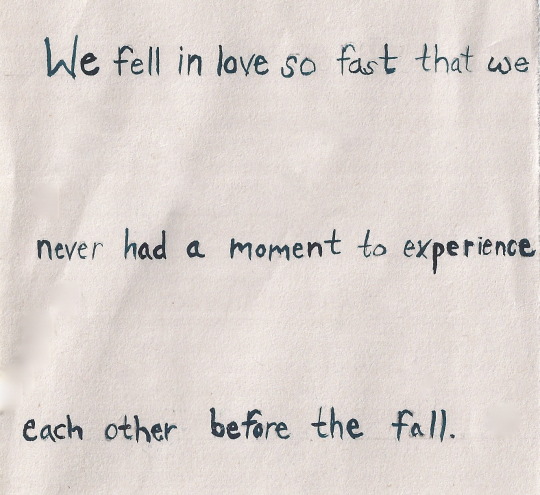 We fell in love so fast that we
never had a moment to experience
each other before the fall.